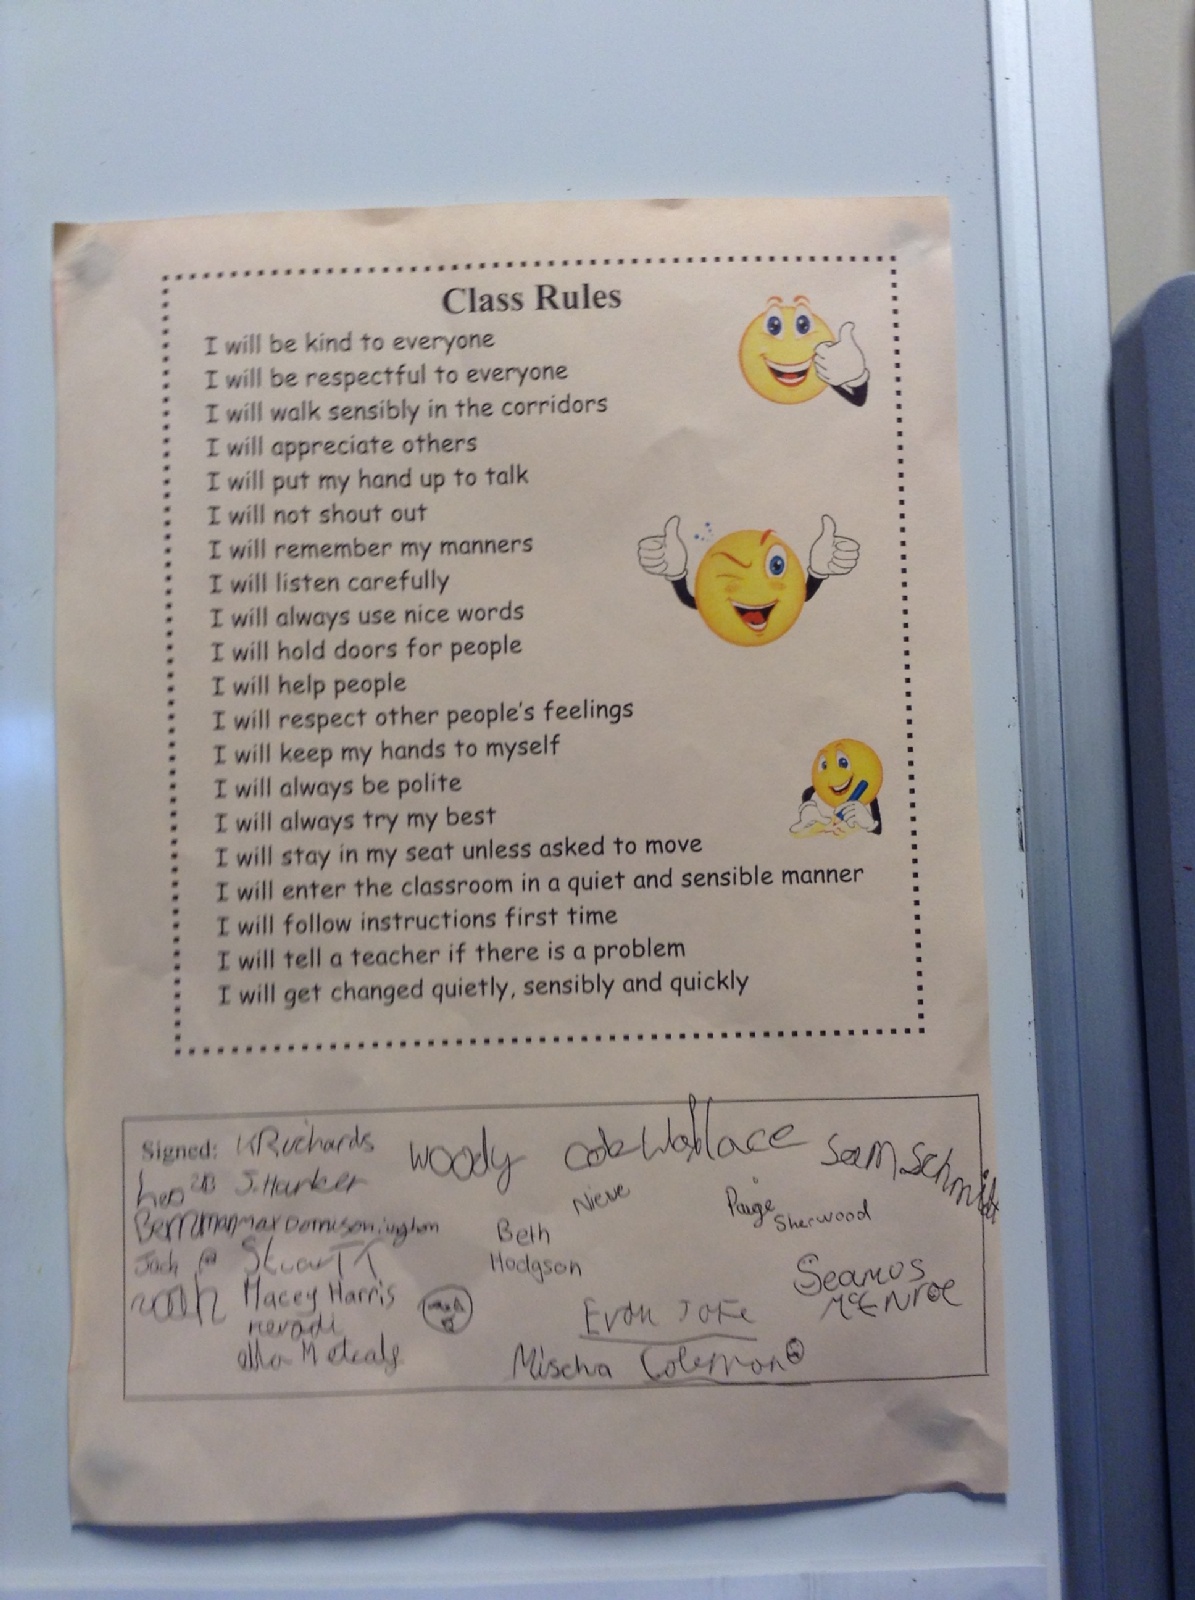 Class Rules
I will be kind to everyone
I will be respectful to everyone
I will walk sensibly in the corridors
I will appreciate others
I will put my hand up to talk
I will not shout out
I will remember my manners
I will listen carefully
I will always use nice words
I will hold doors for people
I will help people
I will respect other people's feelings
I will keep my hands to myself
I will always be polite
I will always try my best
I will stay in my seat unless asked to move
I will enter the classroom in a quiet and sensible manner
I will follow instructions first time
I will tell a teacher if there is a problem
I will get changed quietly, sensibly and quickly
Signed: K Richards woody Wallace Sam Schmidt
J. Harker Nieve Paige
Berryman max Sherwood
Beth
Jack Stuart
Hodgson
noah Macey Harris Seamus
McEnroe
Evan
ella Metcalf Mischa Coleman